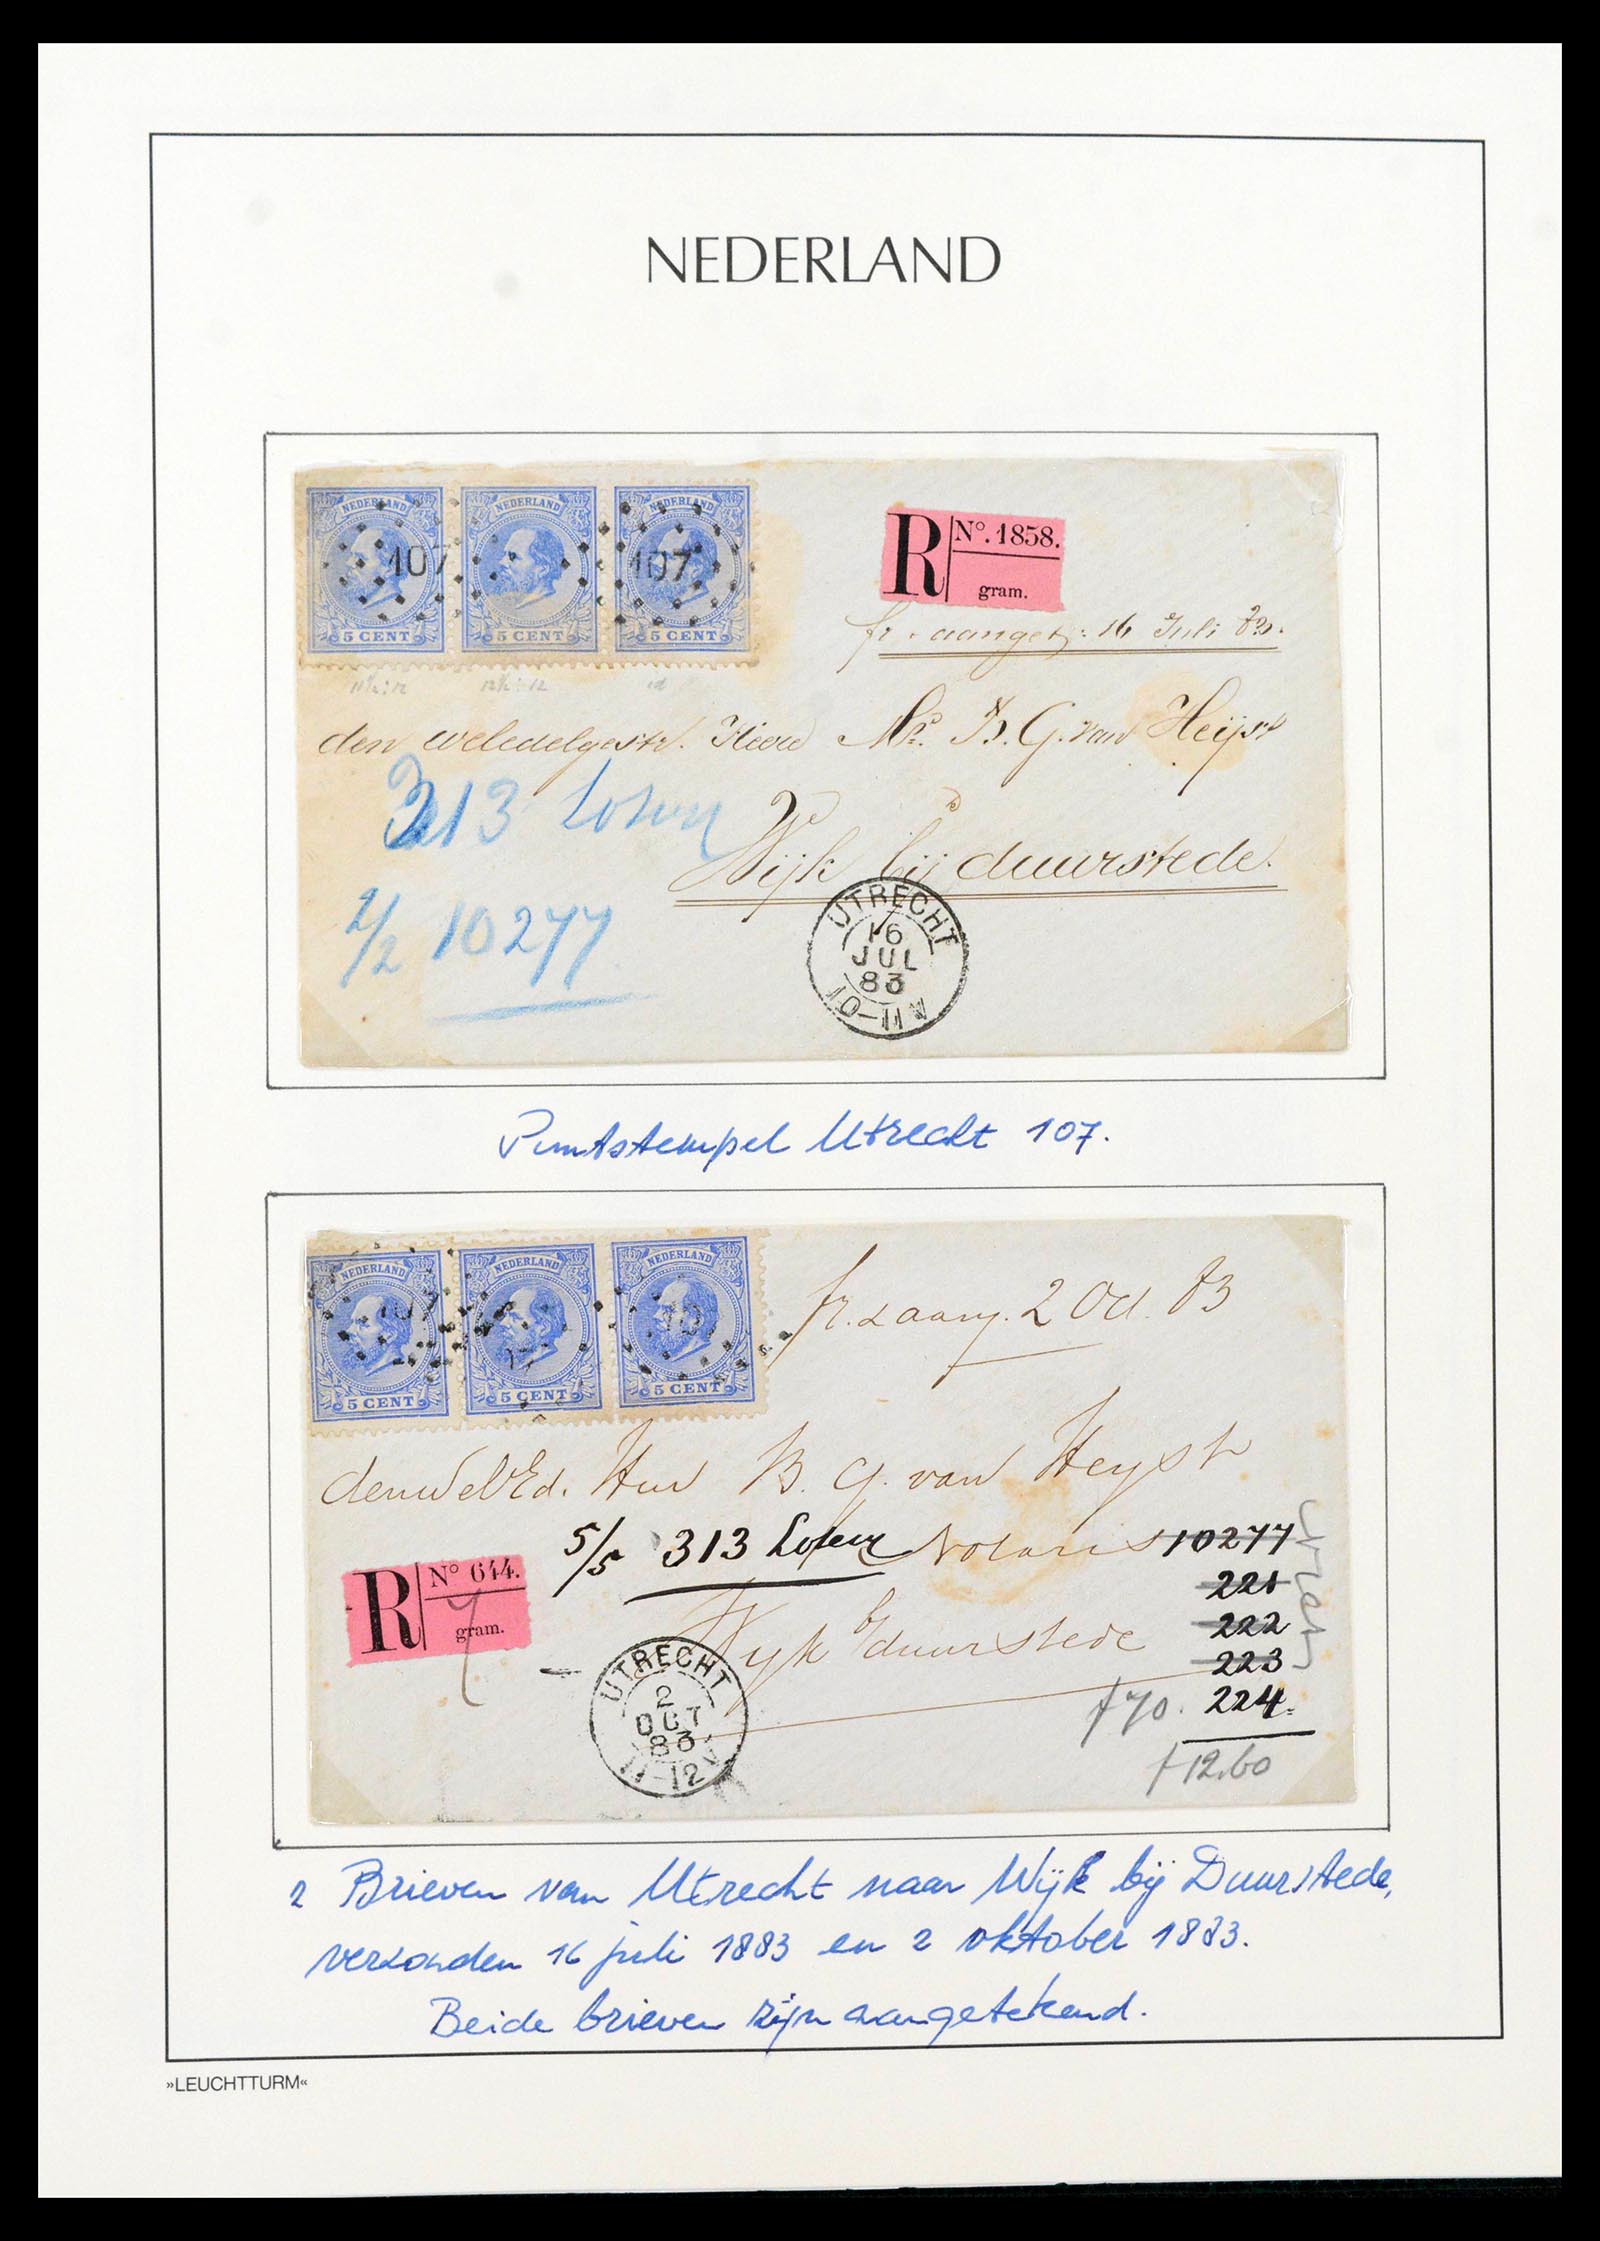 NEDERLAND
NEDERLAND NEDERLAND NEDERLAND
107 107
5 CENT 5 CENT 5 CENT
R No. 1858.
gram.
fr. aanget: 16 Juli 83.
11½:12 12½:12 id
den weledelgestr. Heere Mr. B. G. van Heijst
313 Loten
Wijk bij duurstede.
2/2 10277
UTRECHT
16
JUL
83
10-11
Puntstempel Utrecht 107.
NEDERLAND NEDERLAND NEDERLAND
107
5 CENT 5 CENT 5 CENT
fr. & aang. 2 Oct. 83
den WelEd. Heer B. G. van Heyst
5/5 313 Loten Notaris 10277
R No 644.
gram.
221
222
Wyk b/ duurstede
223
f 70. 224.
f 12.60
UTRECHT
2
OCT
83
11-12
2 Brieven van Utrecht naar Wijk bij Duurstede,
verzonden 16 juli 1883 en 2 oktober 1883.
Beide brieven zijn aangetekend.
»LEUCHTTURM«